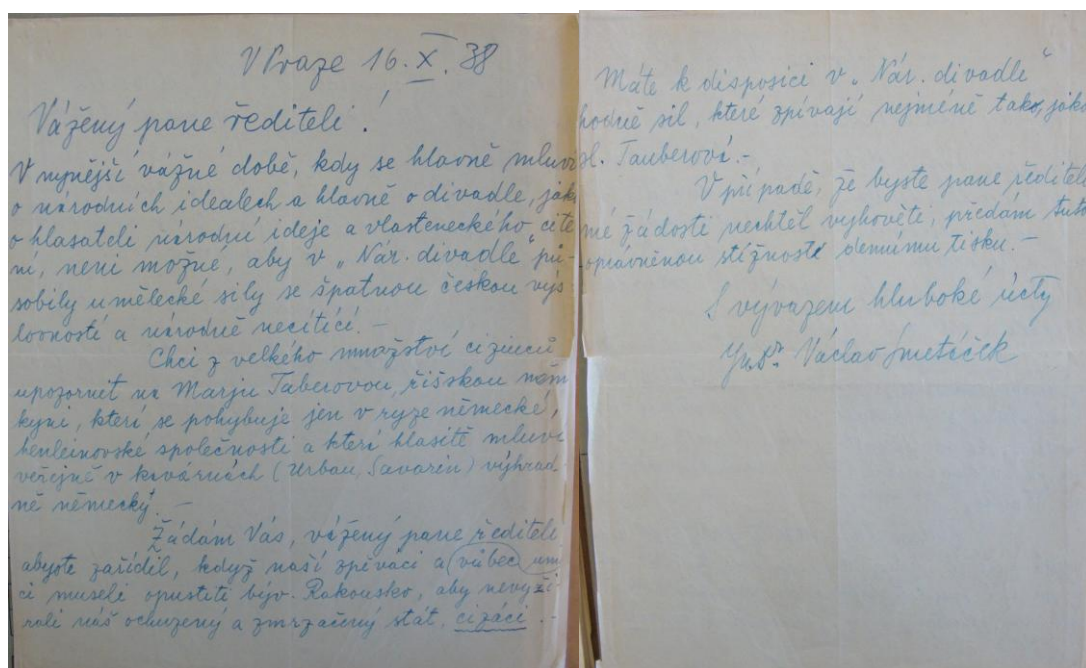 V Praze 16. X. 38
Vážený pane řediteli!
V nynější vážné době, kdy se hlavně mluví
o národních idealech a hlavně o divadle, jako
o hlasateli národní ideje a vlasteneckého cítě
ní, není možné, aby v „Nár. divadle" pů-
sobily umělecké síly se špatnou českou výs
lovností a národně necítící. –
Chci z velkého množství cizinců
upozornit na Marju Taberovou, říšskou něm
kyni, která se pohybuje jen v ryze německé,
henleinovské společnosti a která hlasitě mluví
veřejně v kavárnách (Urban, Savarin) výhrad-
ně německy. –
Žádám Vás, vážený pane řediteli
abyste zařídil, když naší zpěváci a vůbec um
ci museli opustiti býv. Rakousko, aby nevyží
rali náš ochuzený a zmrzačený stát, cizáci. –
Máte k disposici v „Nár. divadle"
hodně sil, které zpívají nejméně tak, jako
sl. Tauberová. –
V případě, že byste pane řediteli
mé žádosti nechtěl vyhověti, předám tuto
oprávněnou stížnost dennímu tisku. –
S výrazem hluboké úcty
Václav Smetáček